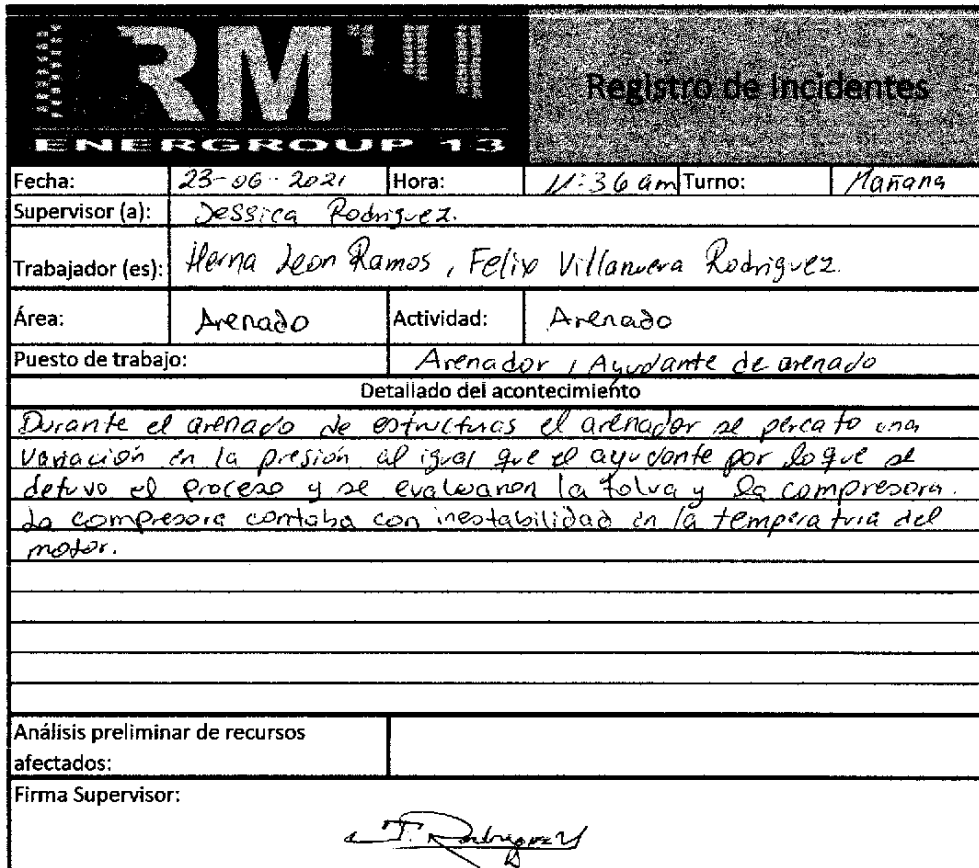 RM
ENERGROUP 13
Registro de Incidentes
Fecha: 23-06-2021 Hora: 11:36 am Turno: Mañana
Supervisor (a): Jessica Rodriguez.
Trabajador (es): Herna Leon Ramos, Felix Villanueva Rodriguez.
Área: Arenado Actividad: Arenado
Puesto de trabajo: Arenador, Ayudante de arenado
Detallado del acontecimiento
Durante el arenado de estructuras el arenador se percato una
variación en la presión al igual que el ayudante por lo que se
detuvo el proceso y se evaluaron la tolva y la compresora.
La compresora contaba con inestabilidad en la temperatura del
motor.
Análisis preliminar de recursos
afectados:
Firma Supervisor:
J. Rodriguez